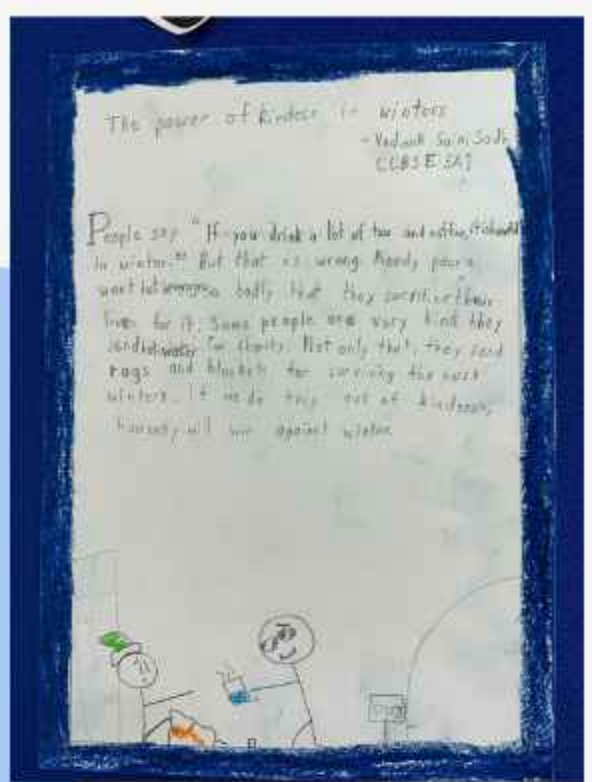 The power of kindess in winters
- Vedant Saini Sodh
CCBSE SAI
People say "If you drink a lot of tea and coffee, it should
in winter." But that is wrong. Needy poor
want hot so badly that they sacrifice their
lives for it. Some people are very kind they
send hot water for charity. Not only that, they send
rags and blankets for surviving the
winters. If we do this out of kindness,
humanity will win against winter.